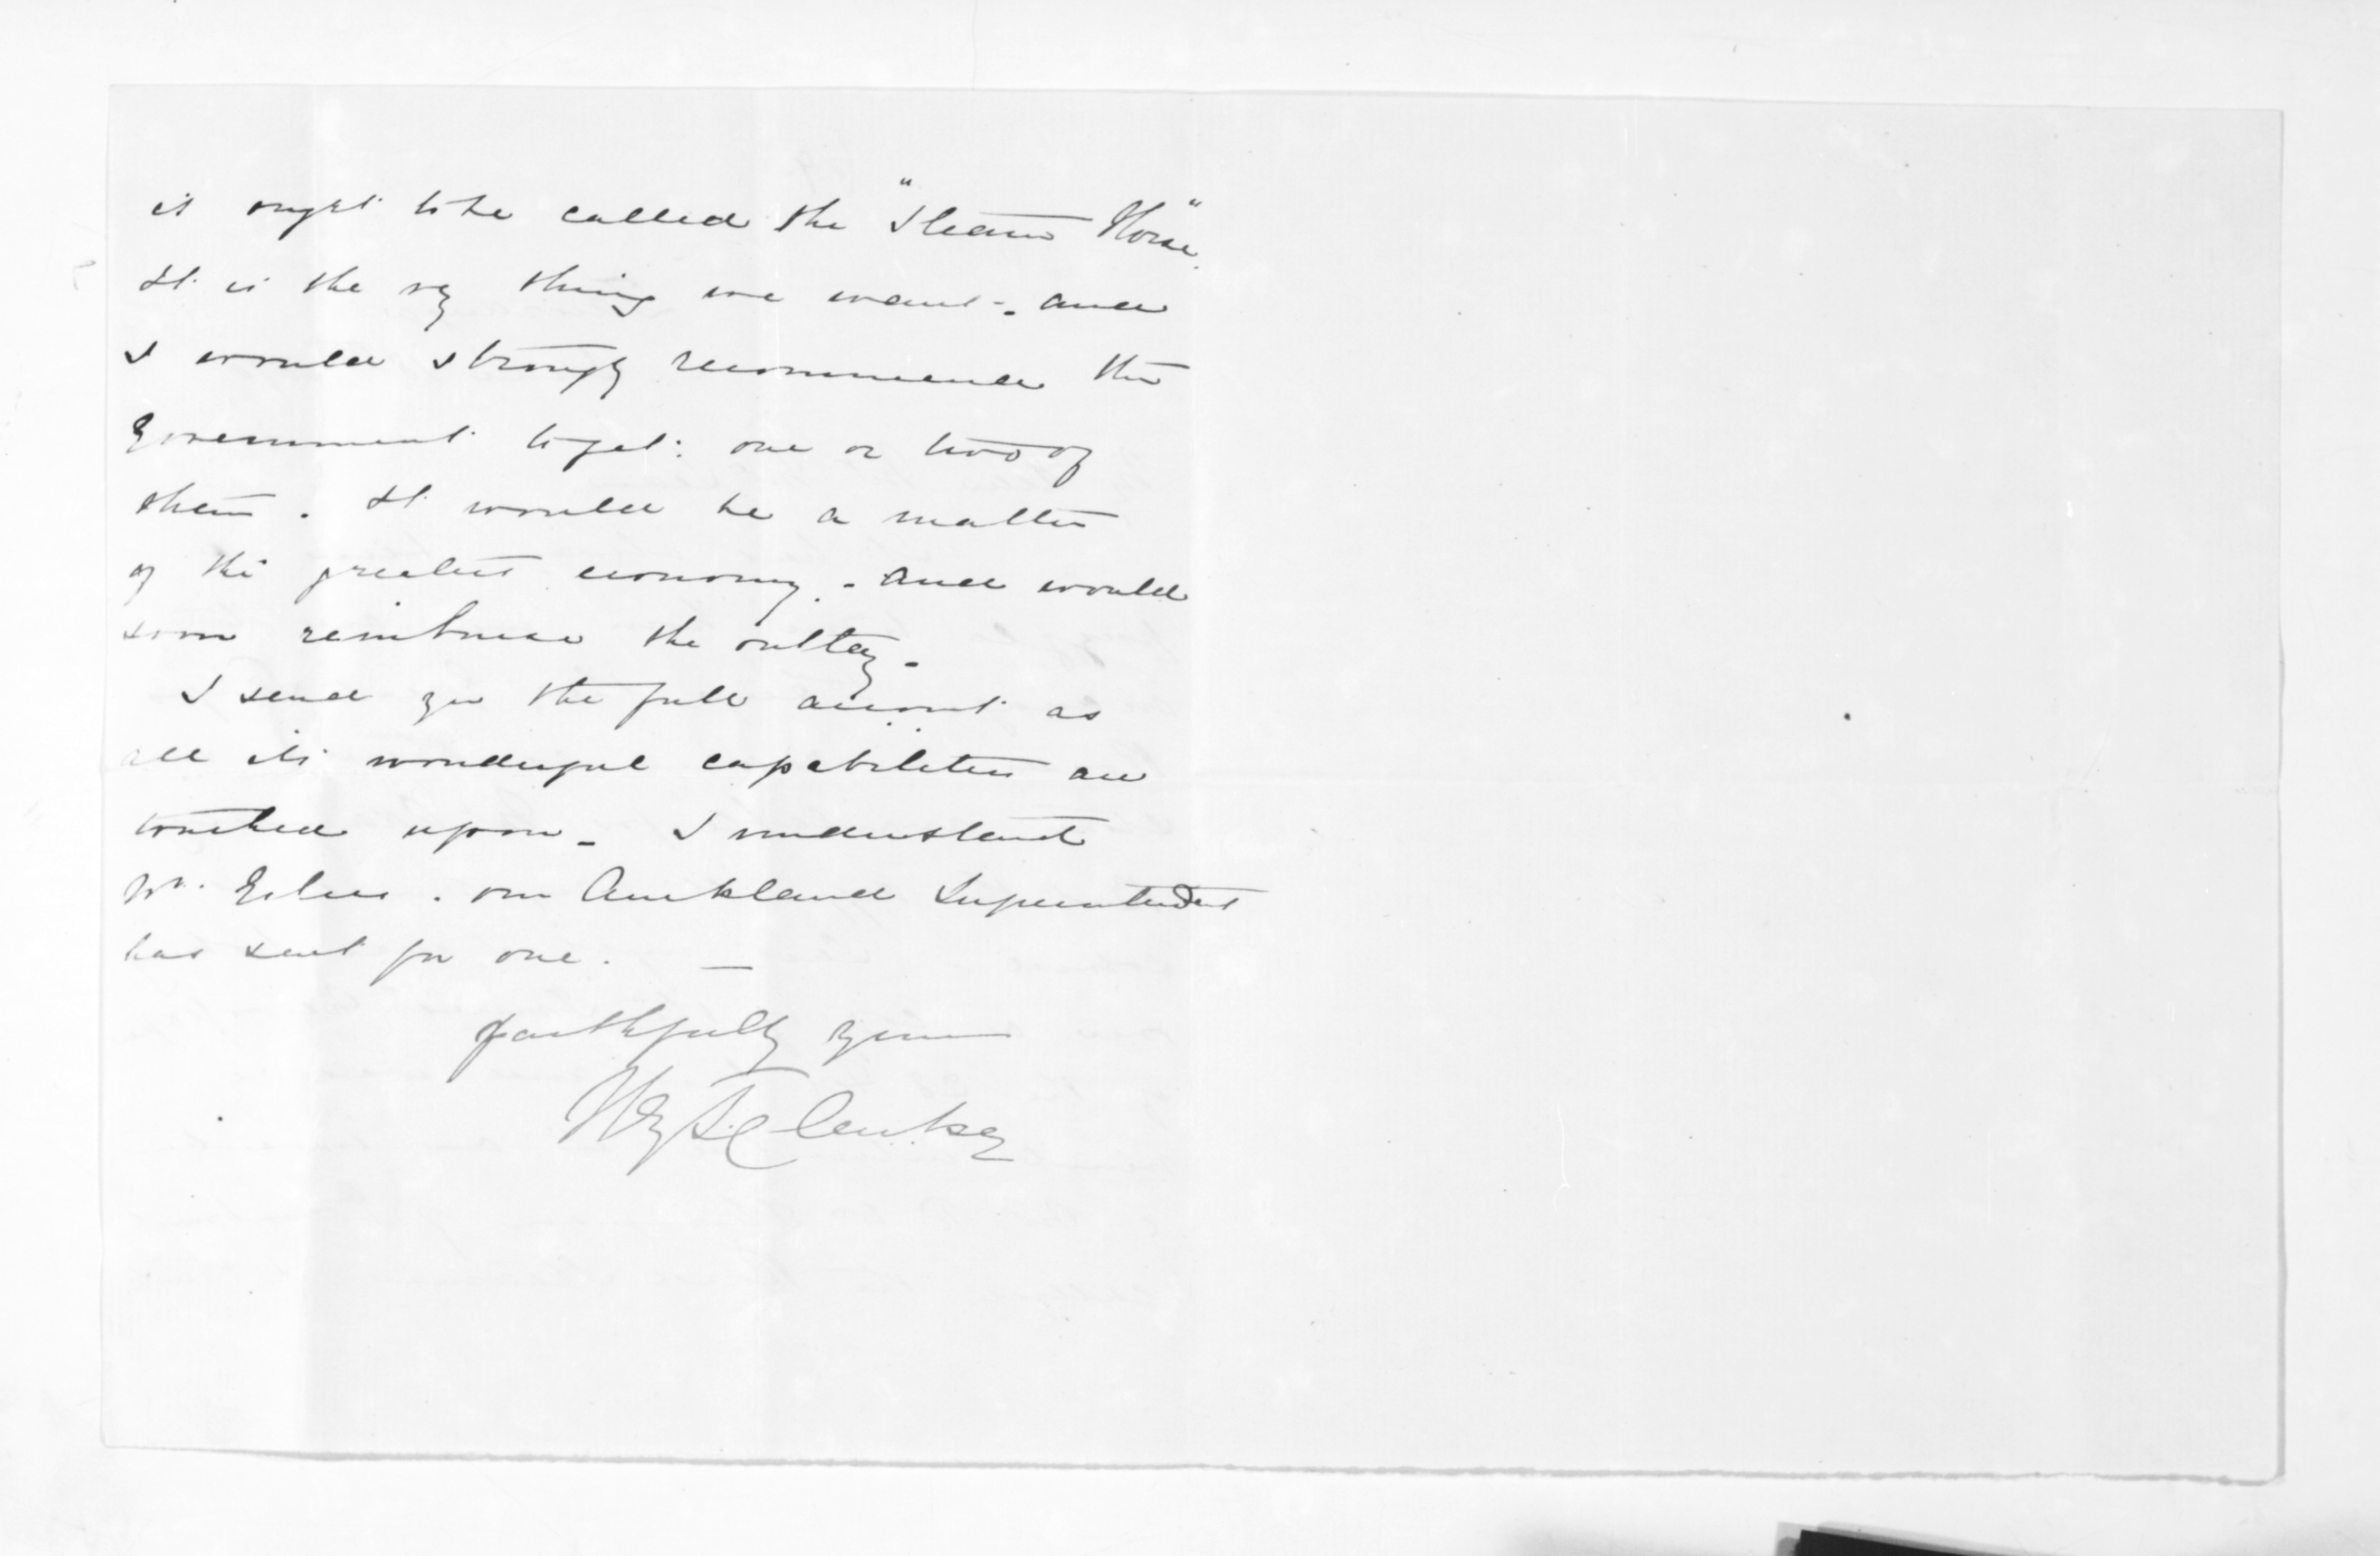 it ought to be called the "Steam Horse".
It is the very thing we want - and
I would strongly recommend the
Government to get one or two of
them. It would be a matter
of the greatest economy - and would
soon reimburse the outlay -
I send you the full account as
all its wonderful capabilities are
touched upon - I understand
Mr. Gillies. our Auckland Superintendent
has sent for one. —
Faithfully yours
Hy T. Clarke